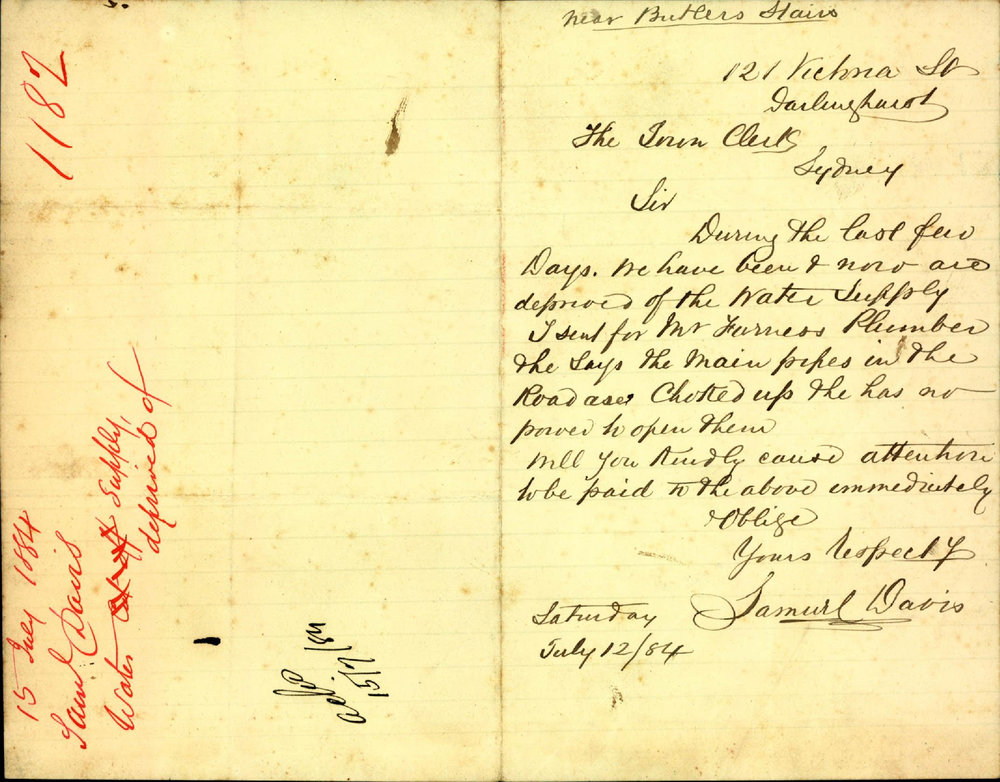 near Butlers Stairs
121 Victoria St
Darlinghurst
The Town Clerk
Sydney
Sir
During the last few
Days. We have been & now are
deprived of the Water Supply
I sent for Mr Furness Plumber
& he says the Main pipes in the
Road are Chotted up & he has no
power to open them
Will You Kindly cause attention
to be paid to the above immediately
& Oblige
Yours Respectly
Samuel Davis
Saturday
July 12/84
1182
15 July 1884
Saml Davis
Water Supply,
deprived of
15/7/84